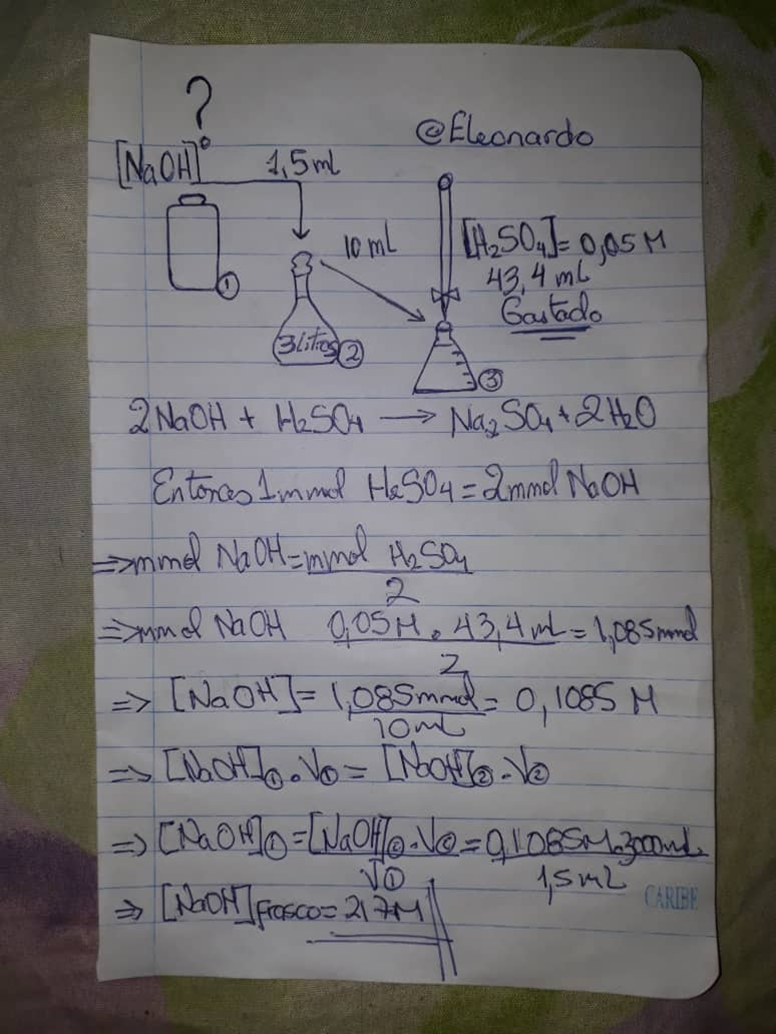 ?
@Eleonardo
[NaOH]° 1,5 ml
10 ml
[H₂SO₄]= 0,05 M
43,4 ml
Gastado
①
3 Litros ②
③
2NaOH + H₂SO₄ → Na₂SO₄ + 2H₂O
Entonces 1 mmol H₂SO₄ = 2 mmol NaOH
=> mmol NaOH = mmol H₂SO₄
2
=> mmol NaOH 0,05M . 43,4 ml = 1,085 mmol
2
=> [NaOH] = 1,085 mmol = 0,1085 M
10 ml
=> [NaOH]① . V① = [NaOH]② . V②
=> [NaOH]① = [NaOH]② . V② = 0,1085M . 3000 ml
V① 1,5 ml
=> [NaOH] frasco = 217M
CARIBE